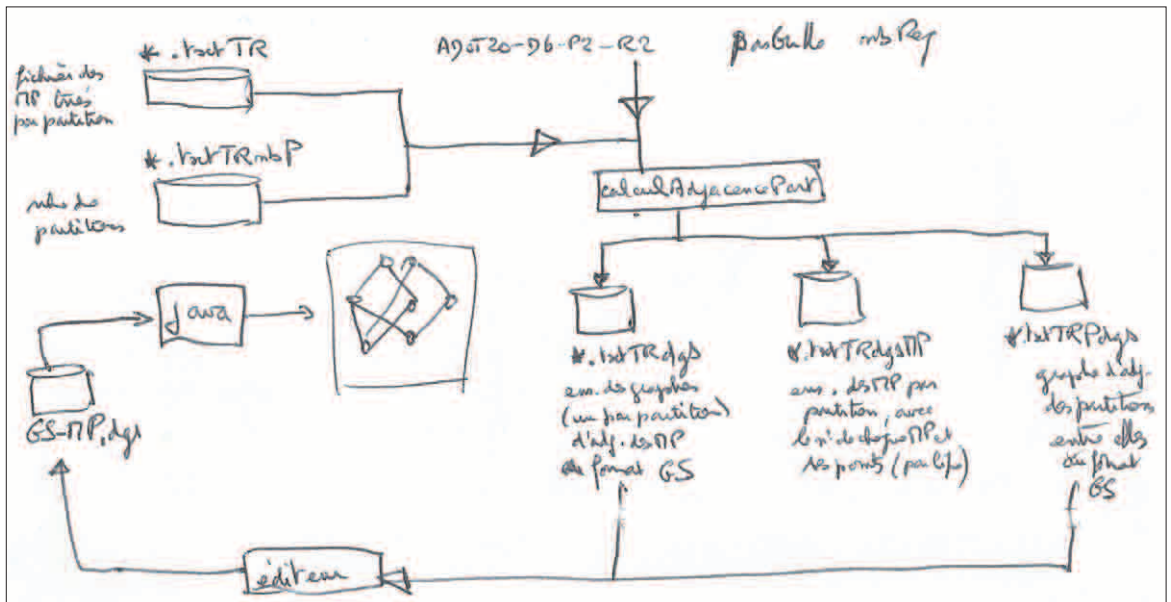 *.txtTR
fichier des
MP triés
par partition
*.txtTRnbP
nbre de
partitions
AD0T20-D6-P2-R2
nbReg
calculAdjacencePart
java
GS-MP.dgs
éditeur
*.txtTRdgs
ens. des graphes
(un par partition)
d'adj. des MP
au format GS
*.txtTRdgsMP
ens. des MP par
partition, avec
le n° de chaque MP et
ses points (par
*.txtTRPdgs
graphe d'adj.
des partitions
entre elles
au format
GS